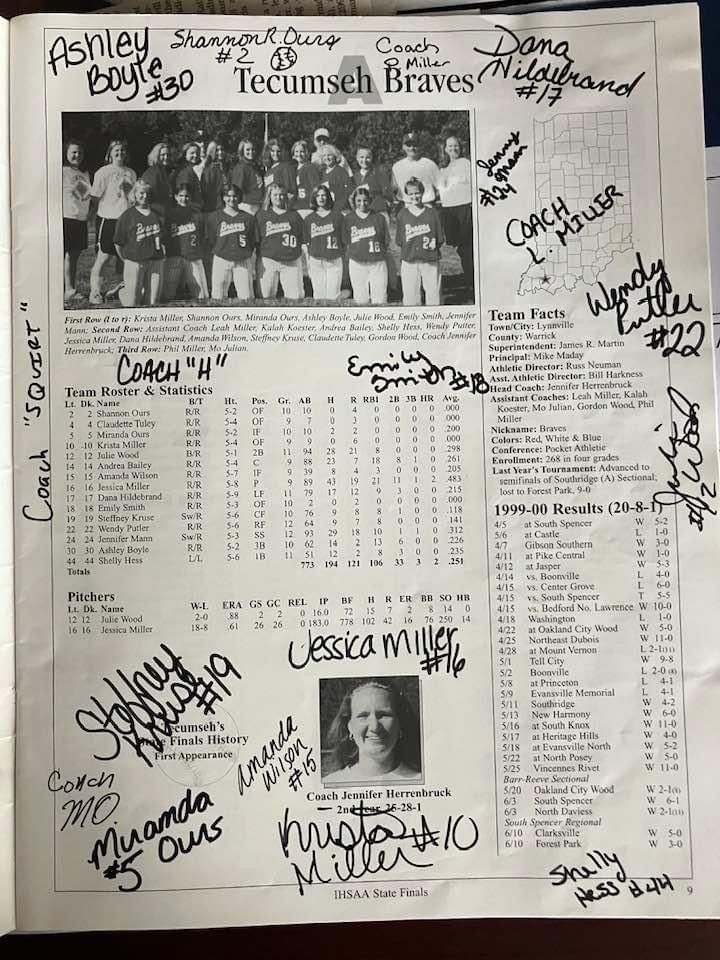 Ashley
Boyle
#30
Shannon R. Ours
#2
Coach
P Miller
Dana
Hildebrand
#17
Tecumseh Braves
A
Jenny
#24
COACH
L. MILLER
Wendy
Putter
#22
First Row (l to r): Krista Miller, Shannon Ours, Miranda Ours, Ashley Boyle, Julie Wood, Emily Smith, Jennifer
Mann; Second Row: Assistant Coach Leah Miller, Kalah Koester, Andrea Bailey, Shelly Hess, Wendy Putter,
Jessica Miller, Dana Hildebrand, Amanda Wilson, Steffney Kruse, Claudette Tuley, Gordon Wood, Coach Jennifer
Herrenbruck; Third Row: Phil Miller, Mo Julian.
COACH "H"
Emily
Smith #18
Coach "SQUIRT"
Team Roster & Statistics
Lt. Dk. Name B/T Ht. Pos. Gr. AB H R RBI 2B 3B HR Avg.
2 2 Shannon Ours R/R 5-2 OF 10 10 0 4 0 0 0 0 .000
4 4 Claudette Tuley R/R 5-4 OF 9 7 0 3 0 0 0 0 .000
5 5 Miranda Ours R/R 5-2 IF 10 10 2 2 0 0 0 0 .200
10 10 Krista Miller R/R 5-4 OF 9 9 0 6 0 0 0 0 .000
12 12 Julie Wood B/R 5-1 2B 11 94 28 21 8 0 0 0 .298
14 14 Andrea Bailey R/R 5-4 C 9 88 23 7 18 8 1 0 .261
15 15 Amanda Wilson R/R 5-7 IF 9 39 8 4 3 0 0 0 .205
16 16 Jessica Miller R/R 5-8 P 9 89 43 19 21 11 1 2 .483
17 17 Dana Hildebrand R/R 5-9 LF 11 79 17 12 9 3 0 0 .215
18 18 Emily Smith R/R 5-3 OF 10 2 0 2 0 0 0 0 .000
19 19 Steffney Kruse Sw/R 5-6 CF 10 76 9 8 8 1 0 0 .118
22 22 Wendy Putter R/R 5-6 RF 12 64 9 7 8 0 0 0 .141
24 24 Jennifer Mann Sw/R 5-3 SS 12 93 29 18 10 1 1 0 .312
30 30 Ashley Boyle R/R 5-2 3B 10 62 14 2 13 6 0 0 .226
44 44 Shelly Hess L/L 5-6 1B 11 51 12 2 8 3 0 0 .235
Totals 773 194 121 106 33 3 2 .251
Pitchers
Lt. Dk. Name W-L ERA GS GC REL IP BF H R ER BB SO HB
12 12 Julie Wood 2-0 .88 2 2 0 16.0 72 15 7 2 8 14 0
16 16 Jessica Miller 18-8 .61 26 26 0 183.0 778 102 42 16 76 250 14
Team Facts
Town/City: Lynnville
County: Warrick
Superintendent: James R. Martin
Principal: Mike Maday
Athletic Director: Russ Neuman
Asst. Athletic Director: Bill Harkness
Head Coach: Jennifer Herrenbruck
Assistant Coaches: Leah Miller, Kalah
Koester, Mo Julian, Gordon Wood, Phil
Miller
Nickname: Braves
Colors: Red, White & Blue
Conference: Pocket Athletic
Enrollment: 268 in four grades
Last Year's Tournament: Advanced to
semifinals of Southridge (A) Sectional;
lost to Forest Park, 9-0
Wood
1999-00 Results (20-8-1)
4/5 at South Spencer W 5-2
5/6 at Castle L 1-0
4/7 Gibson Southern W 3-0
4/11 at Pike Central W 1-0
4/12 at Jasper W 5-3
4/14 vs. Boonville L 4-0
4/15 vs. Center Grove L 6-0
4/15 vs. South Spencer T 5-5
4/15 vs. Bedford No. Lawrence W 10-0
4/18 Washington L 1-0
4/22 at Oakland City Wood W 5-0
4/25 Northeast Dubois W 11-0
4/28 at Mount Vernon L 2-1(11)
5/1 Tell City W 9-8
5/2 Boonville L 2-0 (8)
5/8 at Princeton L 4-1
5/9 Evansville Memorial L 4-1
5/11 Southridge W 4-2
5/13 New Harmony W 6-0
5/16 at South Knox W 11-0
5/17 at Heritage Hills W 4-0
5/18 at Evansville North W 5-2
5/22 at North Posey W 5-0
5/25 Vincennes Rivet W 11-0
Barr-Reeve Sectional
5/20 Oakland City Wood W 2-1(8)
6/3 South Spencer W 6-1
6/3 North Daviess W 2-1(11)
South Spencer Regional
6/10 Clarksville W 5-0
6/10 Forest Park W 3-0
Jessica Miller
#16
Steffney
Kruse #19
Tecumseh's
State Finals History
First Appearance
Amanda
Wilson
#15
Coach
MO
Miranda
#5 Ours
Coach Jennifer Herrenbruck
2nd year, 25-28-1
Krista #10
Miller
Shelly
Hess #44
IHSAA State Finals
9